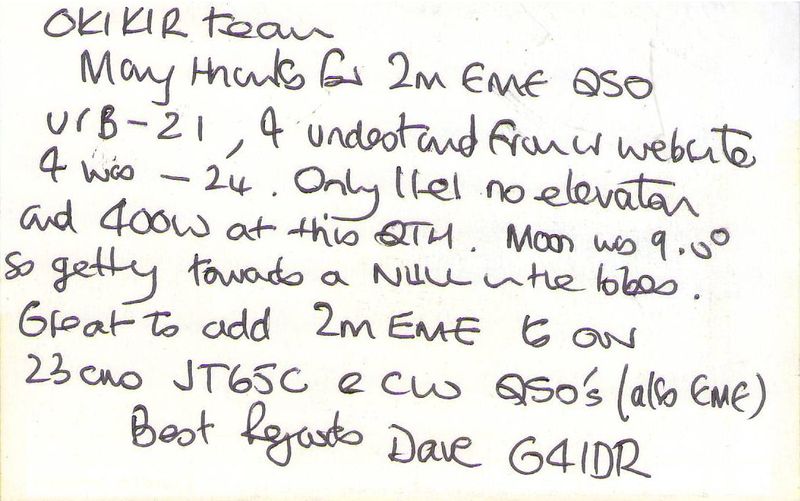 OK1KIR team
Many thanks for 2m EME QSO
UR B-21, I understand from ur website
I was -24. Only 11el no elevation
and 400W at this QTH. Moon was 9.0°
so getting towards a NULL in the lobes.
Great to add 2m EME to our
23cms JT65C & CW QSO's (also EME)
Best Regards Dave G4IDR